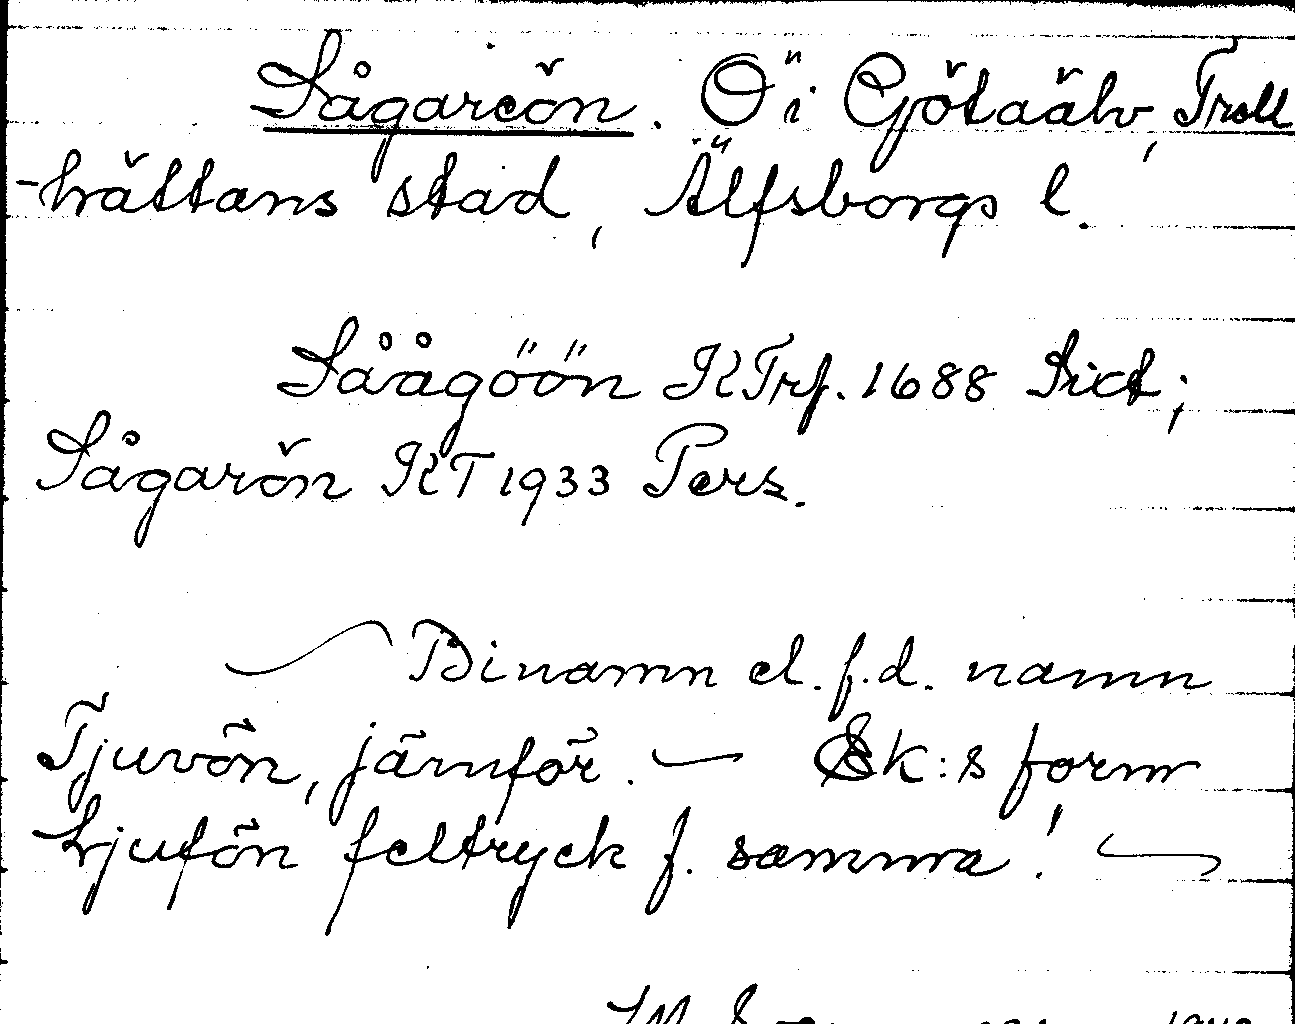 Sågareön. Ö i Götaälv, Troll
-hättans stad, Älfsborgs l.
Såågöön KTrf. 1688 Dict;
Sågarön KT 1933 Pers.
Binamn el. f.d. namn
Tjuvön, jämför. — Ek:s form
hjufön feltryck f. samma!